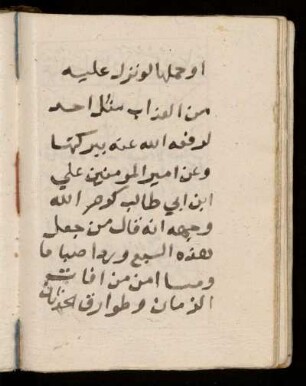 او حملها لو نزل عليه
من العذاب مثل احد
لدفعه الله عنه ببركتها
وعن امير المومنين علي
ابن ابي طالب كرم الله
وجهه انه قال من جعل
هذه السبع وردا صباحا
ومسا امن من افات
الزمان وطوارق الحدثان